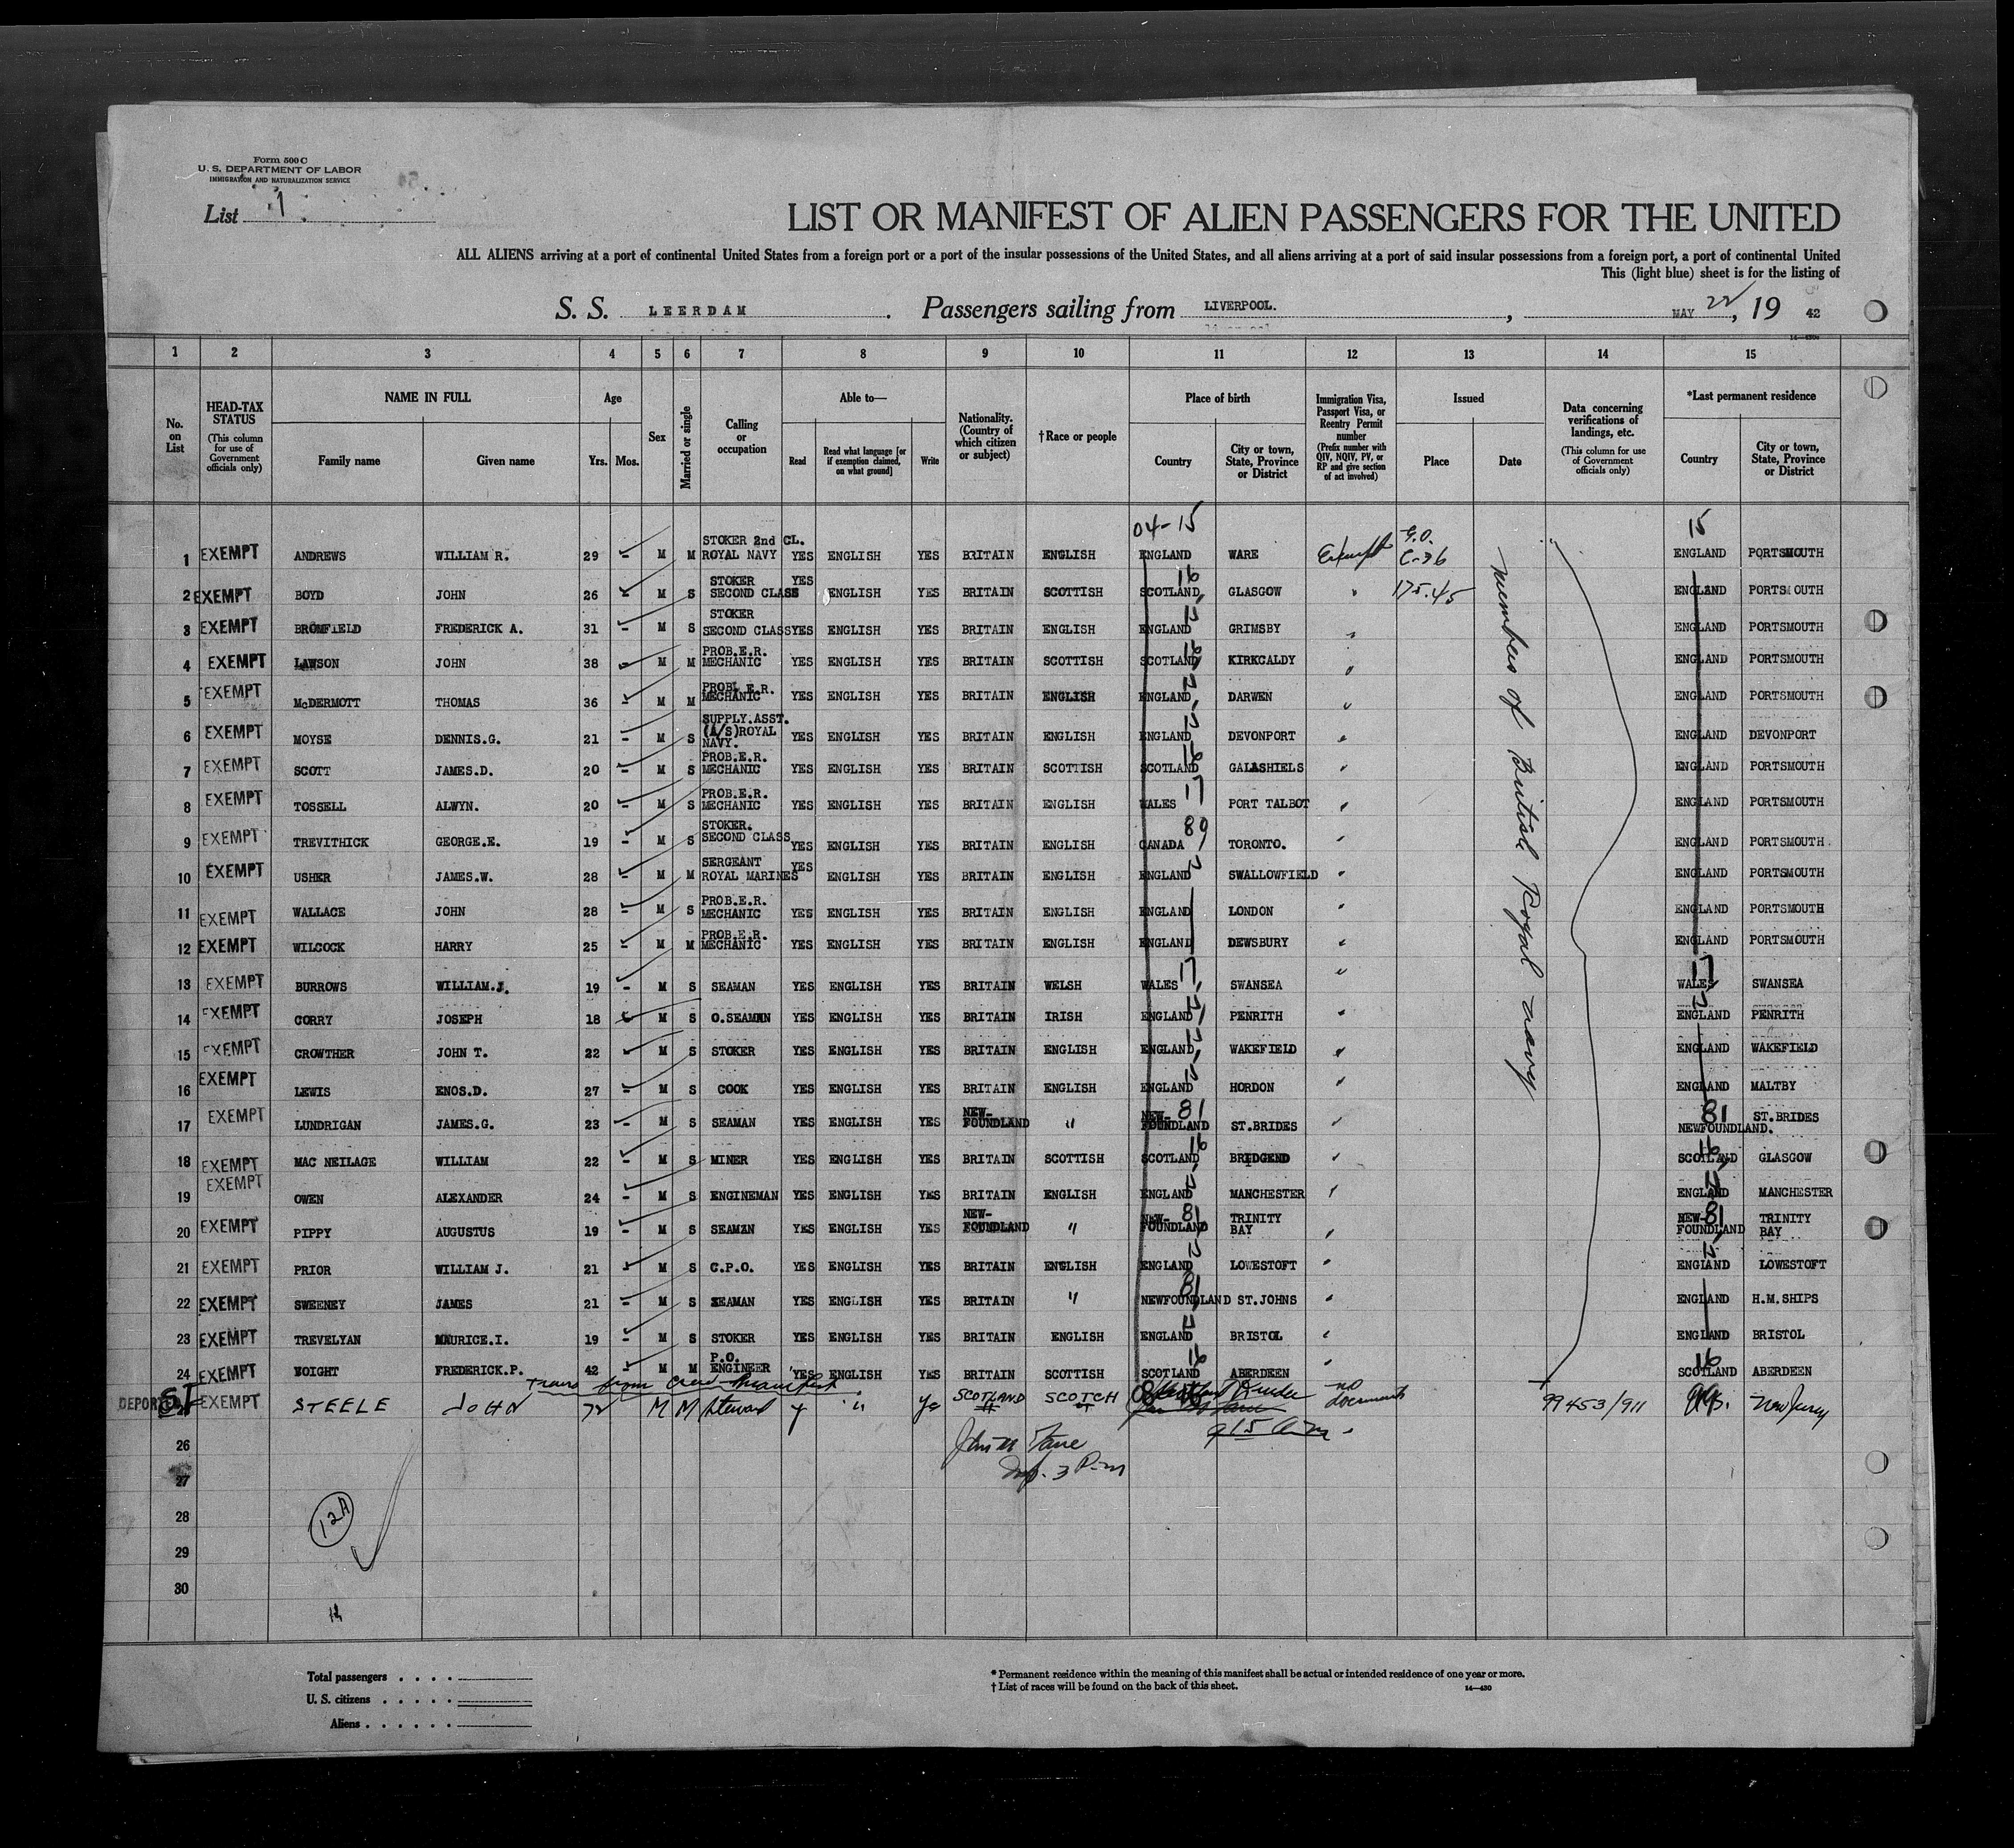 Form 500 C
U. S. DEPARTMENT OF LABOR
IMMIGRATION AND NATURALIZATION SERVICE
List 1
LIST OR MANIFEST OF ALIEN PASSENGERS FOR THE UNITED
ALL ALIENS arriving at a port of continental United States from a foreign port or a port of the insular possessions of the United States, and all aliens arriving at a port of said insular possessions from a foreign port, a port of continental United
This (light blue) sheet is for the listing of
S. S. LEERDAM. Passengers sailing from LIVERPOOL., MAY 22, 19 42
1 2 3 4 5 6 7 8 9 10 11 12 13 14 15
No. on List
HEAD-TAX STATUS (This column for use of Government officials only)
NAME IN FULL Family name Given name
Age Yrs. Mos.
Sex
Married or single
Calling or occupation
Able to— Read Read what language [or if exemption claimed, on what ground] Write
Nationality. (Country of which citizen or subject)
†Race or people
Place of birth Country City or town, State, Province or District
Immigration Visa, Passport Visa, or Reentry Permit number (Prefix number with QIV, NQIV, PV, or RP and give section of act involved)
Issued Place Date
Data concerning verifications of landings, etc. (This column for use of Government officials only)
*Last permanent residence Country City or town, State, Province or District
04-15 15
1 EXEMPT ANDREWS WILLIAM R. 29 - M M STOKER 2nd CL. ROYAL NAVY YES ENGLISH YES BRITAIN ENGLISH ENGLAND WARE Exempt G.O. C-36 ENGLAND PORTSMOUTH
2 EXEMPT BOYD JOHN 26 - M S STOKER SECOND CLASS YES ENGLISH YES BRITAIN SCOTTISH SCOTLAND 16 GLASGOW " 175.45 ENGLAND PORTSMOUTH
3 EXEMPT BROMFIELD FREDERICK A. 31 - M S STOKER SECOND CLASS YES ENGLISH YES BRITAIN ENGLISH ENGLAND 15 GRIMSBY " ENGLAND PORTSMOUTH
4 EXEMPT LAWSON JOHN 38 - M M PROB.E.R. MECHANIC YES ENGLISH YES BRITAIN SCOTTISH SCOTLAND 16 KIRKCALDY " ENGLAND PORTSMOUTH
5 EXEMPT McDERMOTT THOMAS 36 - M M PROBL E.R. MECHANIC YES ENGLISH YES BRITAIN ENGLISH ENGLAND 15 DARWEN " ENGLAND PORTSMOUTH
6 EXEMPT MOYSE DENNIS.G. 21 - M S SUPPLY.ASST. (A/S)ROYAL NAVY. YES ENGLISH YES BRITAIN ENGLISH ENGLAND 15 DEVONPORT " ENGLAND DEVONPORT
7 EXEMPT SCOTT JAMES.D. 20 - M S PROB.E.R. MECHANIC YES ENGLISH YES BRITAIN SCOTTISH SCOTLAND 16 GALASHIELS " ENGLAND PORTSMOUTH
8 EXEMPT TOSSELL ALWYN. 20 - M S PROB.E.R. MECHANIC YES ENGLISH YES BRITAIN ENGLISH WALES 17 PORT TALBOT " ENGLAND PORTSMOUTH
9 EXEMPT TREVITHICK GEORGE.E. 19 - M S STOKER. SECOND CLASS YES ENGLISH YES BRITAIN ENGLISH CANADA 89 TORONTO. " ENGLAND PORTSMOUTH.
10 EXEMPT USHER JAMES.W. 28 - M M SERGEANT ROYAL MARINES YES ENGLISH YES BRITAIN ENGLISH ENGLAND 15 SWALLOWFIELD " ENGLAND PORTSMOUTH
11 EXEMPT WALLACE JOHN 28 - M S PROB.E.R. MECHANIC YES ENGLISH YES BRITAIN ENGLISH ENGLAND LONDON " ENGLAND PORTSMOUTH
12 EXEMPT WILCOCK HARRY 25 - M M PROB.E.R. MECHANIC YES ENGLISH YES BRITAIN ENGLISH ENGLAND DEWSBURY " ENGLAND PORTSMOUTH
13 EXEMPT BURROWS WILLIAM.J. 19 - M S SEAMAN YES ENGLISH YES BRITAIN WELSH WALES 17 SWANSEA " WALES 17 SWANSEA
14 EXEMPT CORRY JOSEPH 18 - M S O.SEAMAN YES ENGLISH YES BRITAIN IRISH ENGLAND 15 PENRITH " ENGLAND 15 PENRITH
15 EXEMPT CROWTHER JOHN T. 22 - M S STOKER YES ENGLISH YES BRITAIN ENGLISH ENGLAND 15 WAKEFIELD " ENGLAND WAKEFIELD
16 EXEMPT LEWIS ENOS.D. 27 - M S COOK YES ENGLISH YES BRITAIN ENGLISH ENGLAND 15 HORDON " ENGLAND MALTBY
17 EXEMPT LUNDRIGAN JAMES.G. 23 - M S SEAMAN YES ENGLISH YES NEW-FOUNDLAND " NEW-FOUNDLAND 81 ST.BRIDES " 81 NEWFOUNDLAND. ST.BRIDES
18 EXEMPT MAC NEILAGE WILLIAM 22 - M S MINER YES ENGLISH YES BRITAIN SCOTTISH SCOTLAND 16 BRIDGEND " SCOTLAND 16 GLASGOW
19 EXEMPT OWEN ALEXANDER 24 - M S ENGINEMAN YES ENGLISH YES BRITAIN ENGLISH ENGLAND 15 MANCHESTER " ENGLAND 15 MANCHESTER
20 EXEMPT PIPPY AUGUSTUS 19 - M S SEAMAN YES ENGLISH YES NEW-FOUNDLAND " NEW-FOUNDLAND 81 TRINITY BAY " NEW-FOUNDLAND 81 TRINITY BAY
21 EXEMPT PRIOR WILLIAM J. 21 - M S C.P.O. YES ENGLISH YES BRITAIN ENGLISH ENGLAND 15 LOWESTOFT " ENGLAND 15 LOWESTOFT
22 EXEMPT SWEENEY JAMES 21 - M S SEAMAN YES ENGLISH YES BRITAIN " NEWFOUNDLAND 81 ST.JOHNS " ENGLAND H.M.SHIPS
23 EXEMPT TREVELYAN MAURICE.I. 19 - M S STOKER YES ENGLISH YES BRITAIN ENGLISH ENGLAND 15 BRISTOL " ENGLAND BRISTOL
24 EXEMPT WOIGHT FREDERICK.P. 42 - M M P.O. ENGINEER YES ENGLISH YES BRITAIN SCOTTISH SCOTLAND 16 ABERDEEN " SCOTLAND 16 ABERDEEN
members of British Royal navy
trans from Crew Manifest
DEPORTED SI EXEMPT STEELE JOHN 72 M M Steward y " ye SCOTLAND SCOTCH Dundee no documents 99453/911 New Jersey
915 am.
26 John
Dep. 3 Pm
27
28 12A
29
30
Total passengers . . . .
U. S. citizens . . . . .
Aliens . . . . . .
* Permanent residence within the meaning of this manifest shall be actual or intended residence of one year or more.
† List of races will be found on the back of this sheet. 14—430